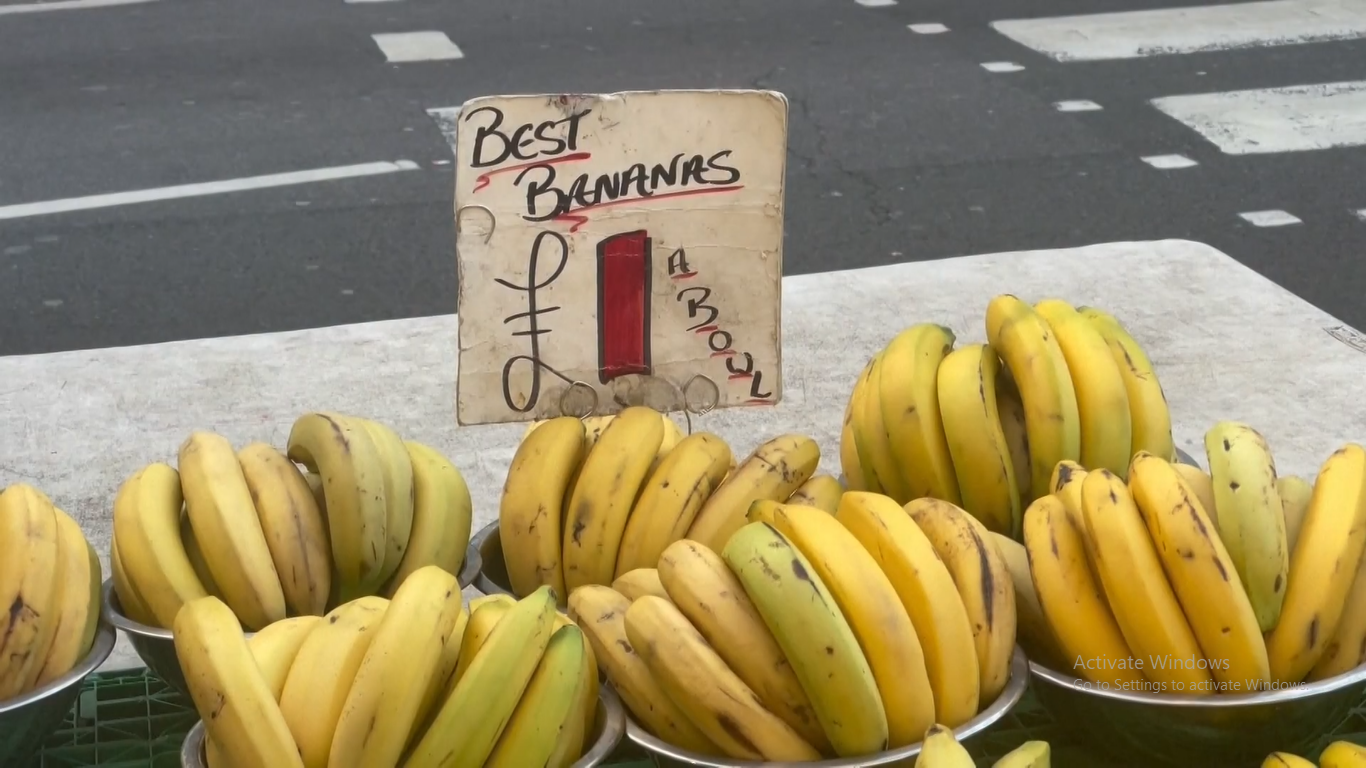 BEST
BANANAS
£1 A BOWL
Activate Windows
Go to Settings to activate Windows.